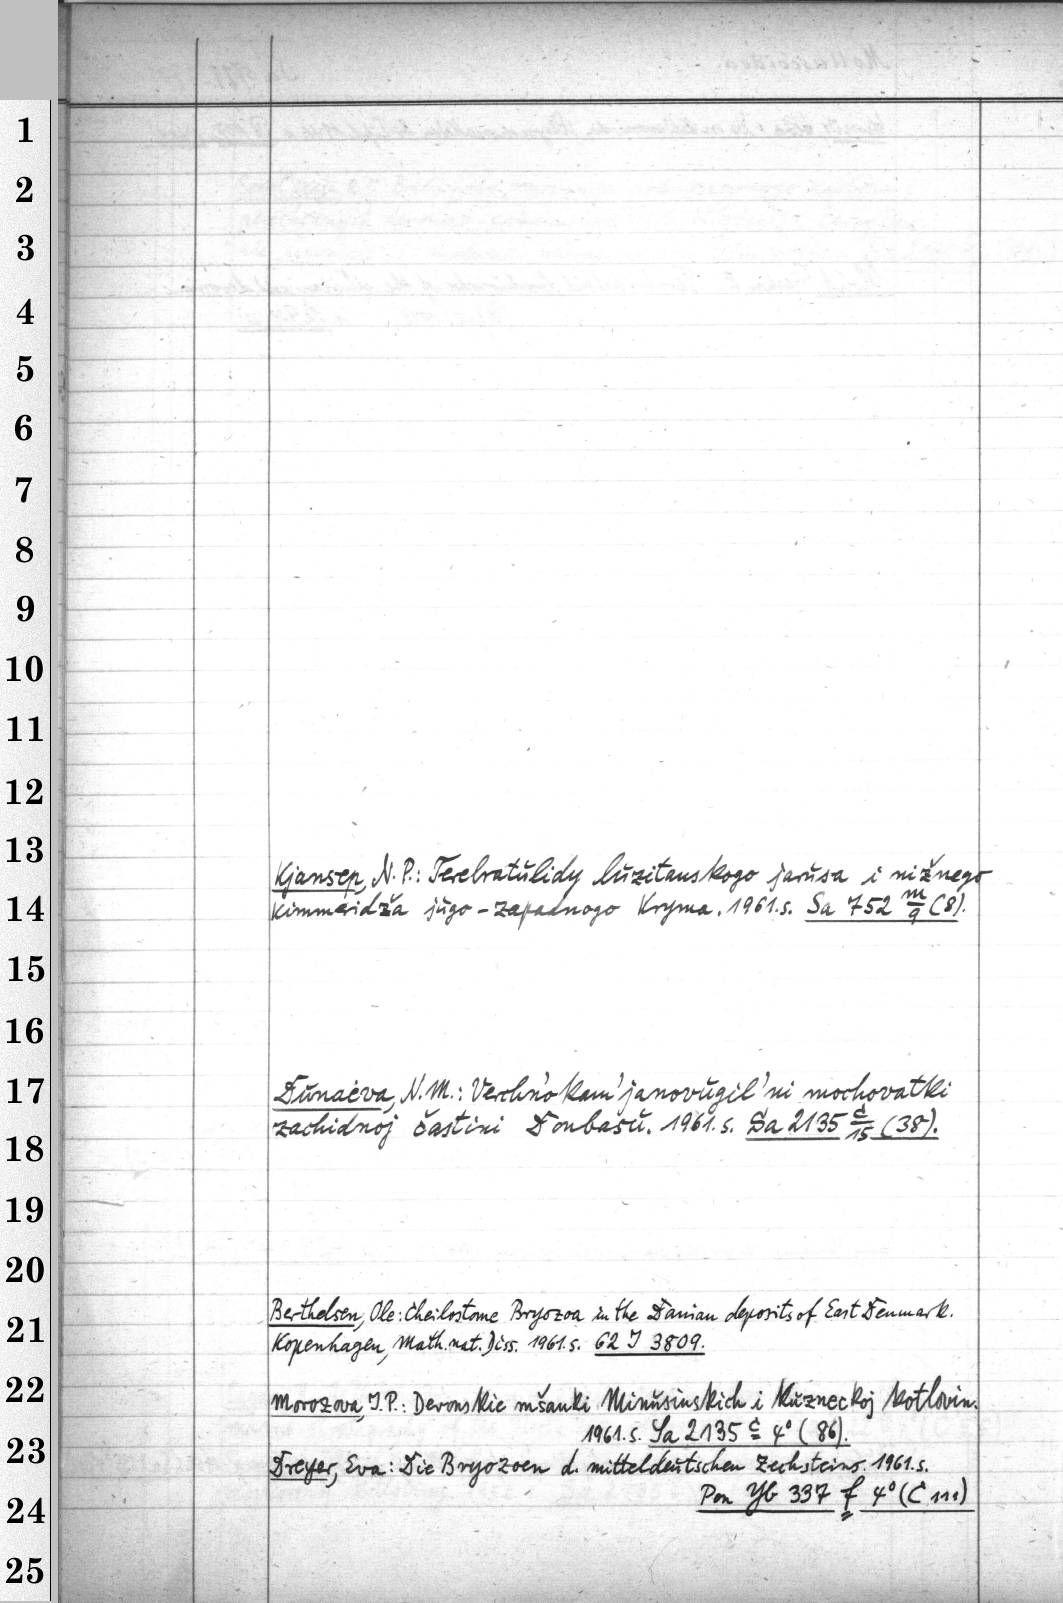 1
2
3
4
5
6
7
8
9
10
11
12
13
Kjansep, N.P.: Terebratŭlidy lŭzitanskogo jarŭsa i nižnego
14
Kimmeridža jŭgo-zapadnogo Kryma. 1961.s. Sa 752 m/9 (8).
15
16
17
Dŭnaeva, N.M.: Verchn'okam'janovŭgil'ni mochovatki
zachidnoj častini Donbasŭ. 1961.s. Sa 2135 c/15 (38).
18
19
20
Berthelsen, Ole: Cheilostome Bryozoa in the Danian deposits of East Denmark.
21
Kopenhagen, Math.nat. Diss. 1961.s. 62 J 3809.
22
Morozova, I.P.: Devonskie mšanki Minŭsinskich i Kŭzneckoj kotlovin.
1961.s. Sa 2135 c 4° (86).
23
Dreyer, Eva: Die Bryozoen d. mitteldeŭtschen Zechsteins. 1961.s.
Pon Yb 337 f 4° (C 111)
24
25